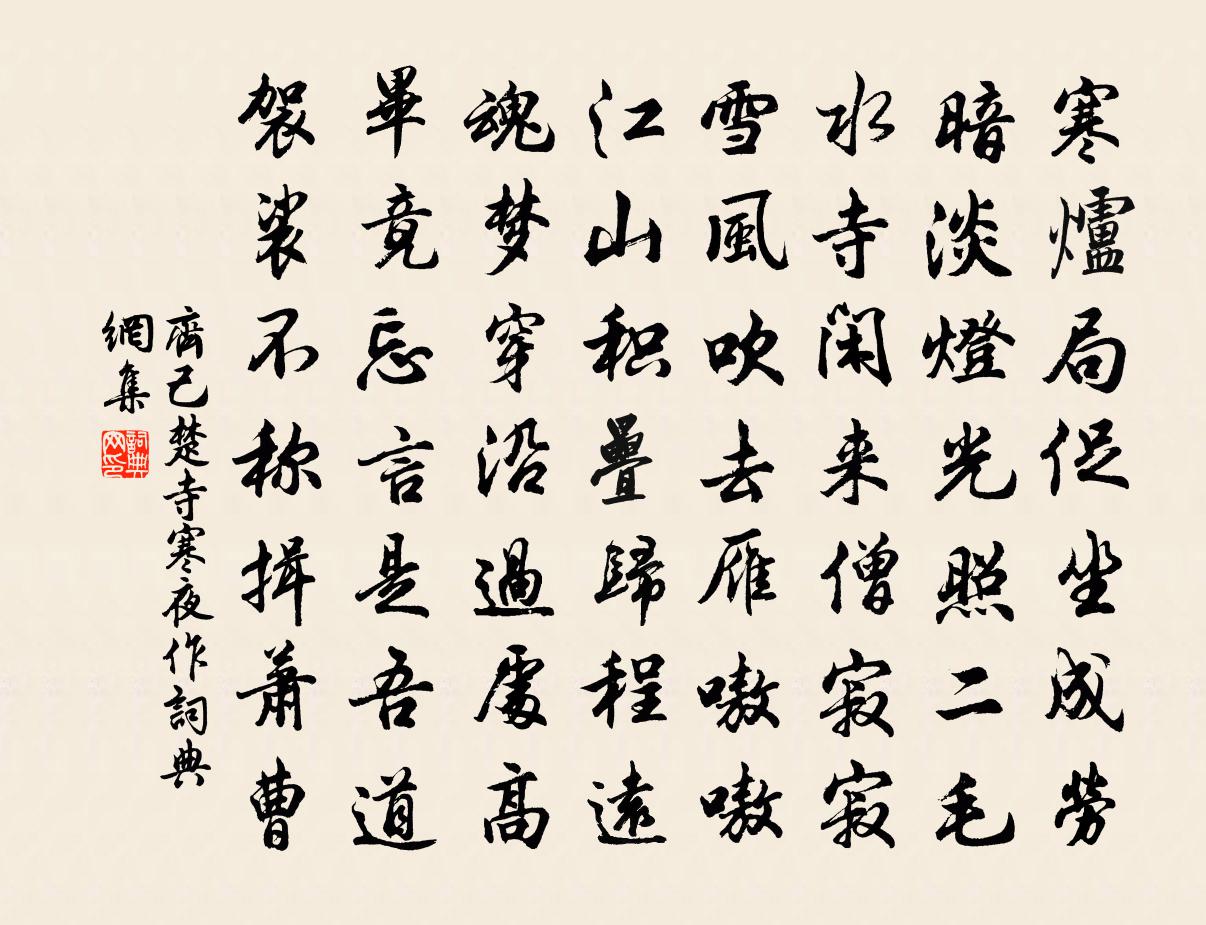 寒爐局促坐成勞
暗淡燈光照二毛
水寺閑来僧寂寂
雪風吹去雁嗷嗷
江山积疊歸程遠
魂梦穿沿過處高
畢竟忘言是吾道
袈裟不称揖蕭曹
齊己楚寺寒夜作詞典
網集
詞典網印